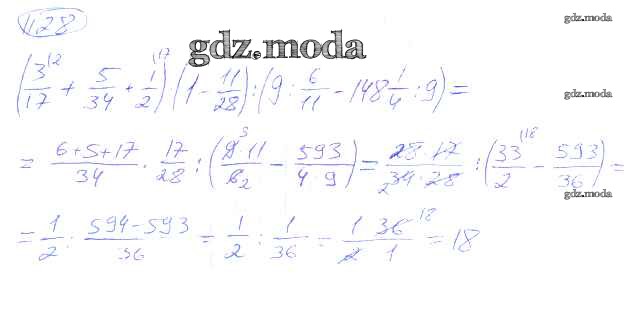 1128
gdz.moda
gdz.moda
(3/17 + 5/34 + 1/2) (1 - 11/28) : (9 : 6/11 - 148 1/4 : 9) =
gdz.moda
= (6+5+17)/34 · 17/28 : (9·11/6 - 593/(4·9)) = (28·17)/(34·28) : (33/2 - 593/36) =
gdz.moda
= 1/2 : (594-593)/36 = 1/2 : 1/36 = (1 36)/(2 1) = 18